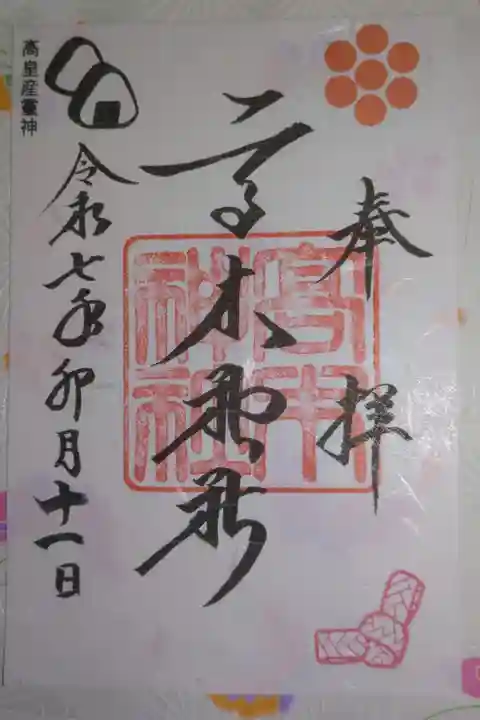 奉拝
高木
高木
神社
令和七年卯月十一日
高皇産靈神